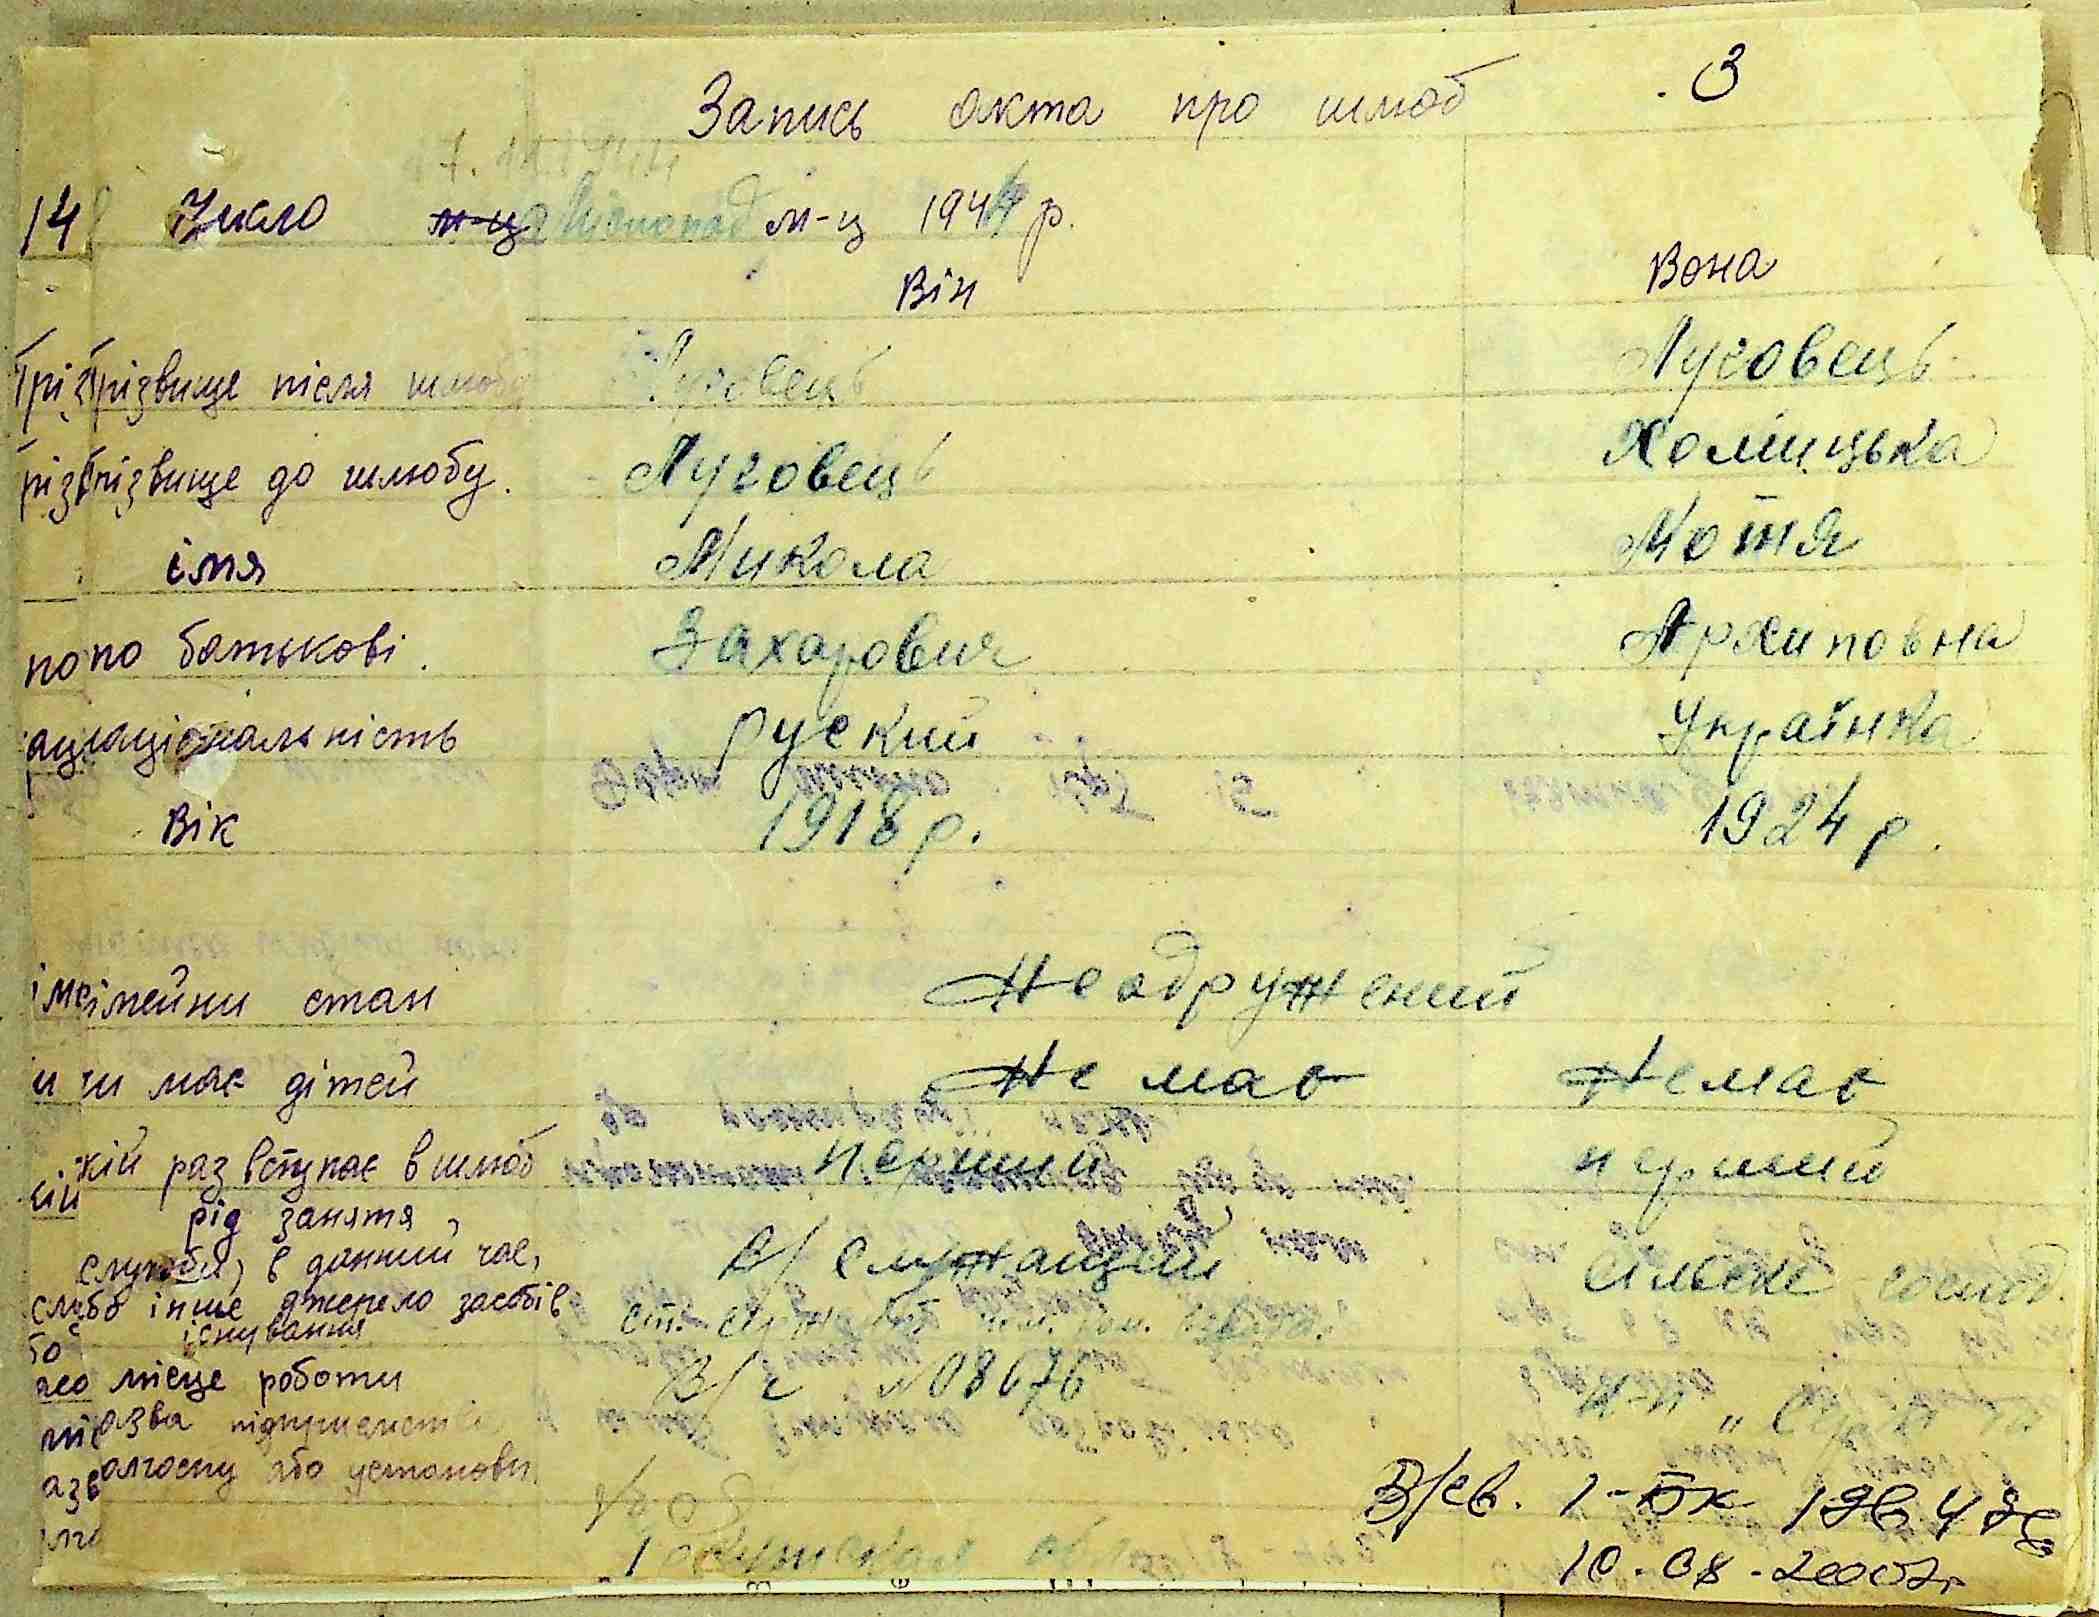 Запись акта про шлюб 3
14 Число м-ца Листопад м-ц 1944 р.
Він Вона
Прізвище після шлюбу Луговець Луговець
Прізвище до шлюбу. Луговець
імя Микола Мотя
по батькові. Захарович Архиповна
національність руский Українка
Вік 1918 р. 1924 р.
сімейни стан Неодружений
чи має дітей Не має Немає
кій раз вступає в шлюб перший перший
рід занятя,
служба, в данний час, В/служащий сільске господ.
або інше джерело засобів
існування
місце роботи В/ч №08676
назва підприємства
колгоспу або установи.
В/св. 1-БК
10.08.2000г